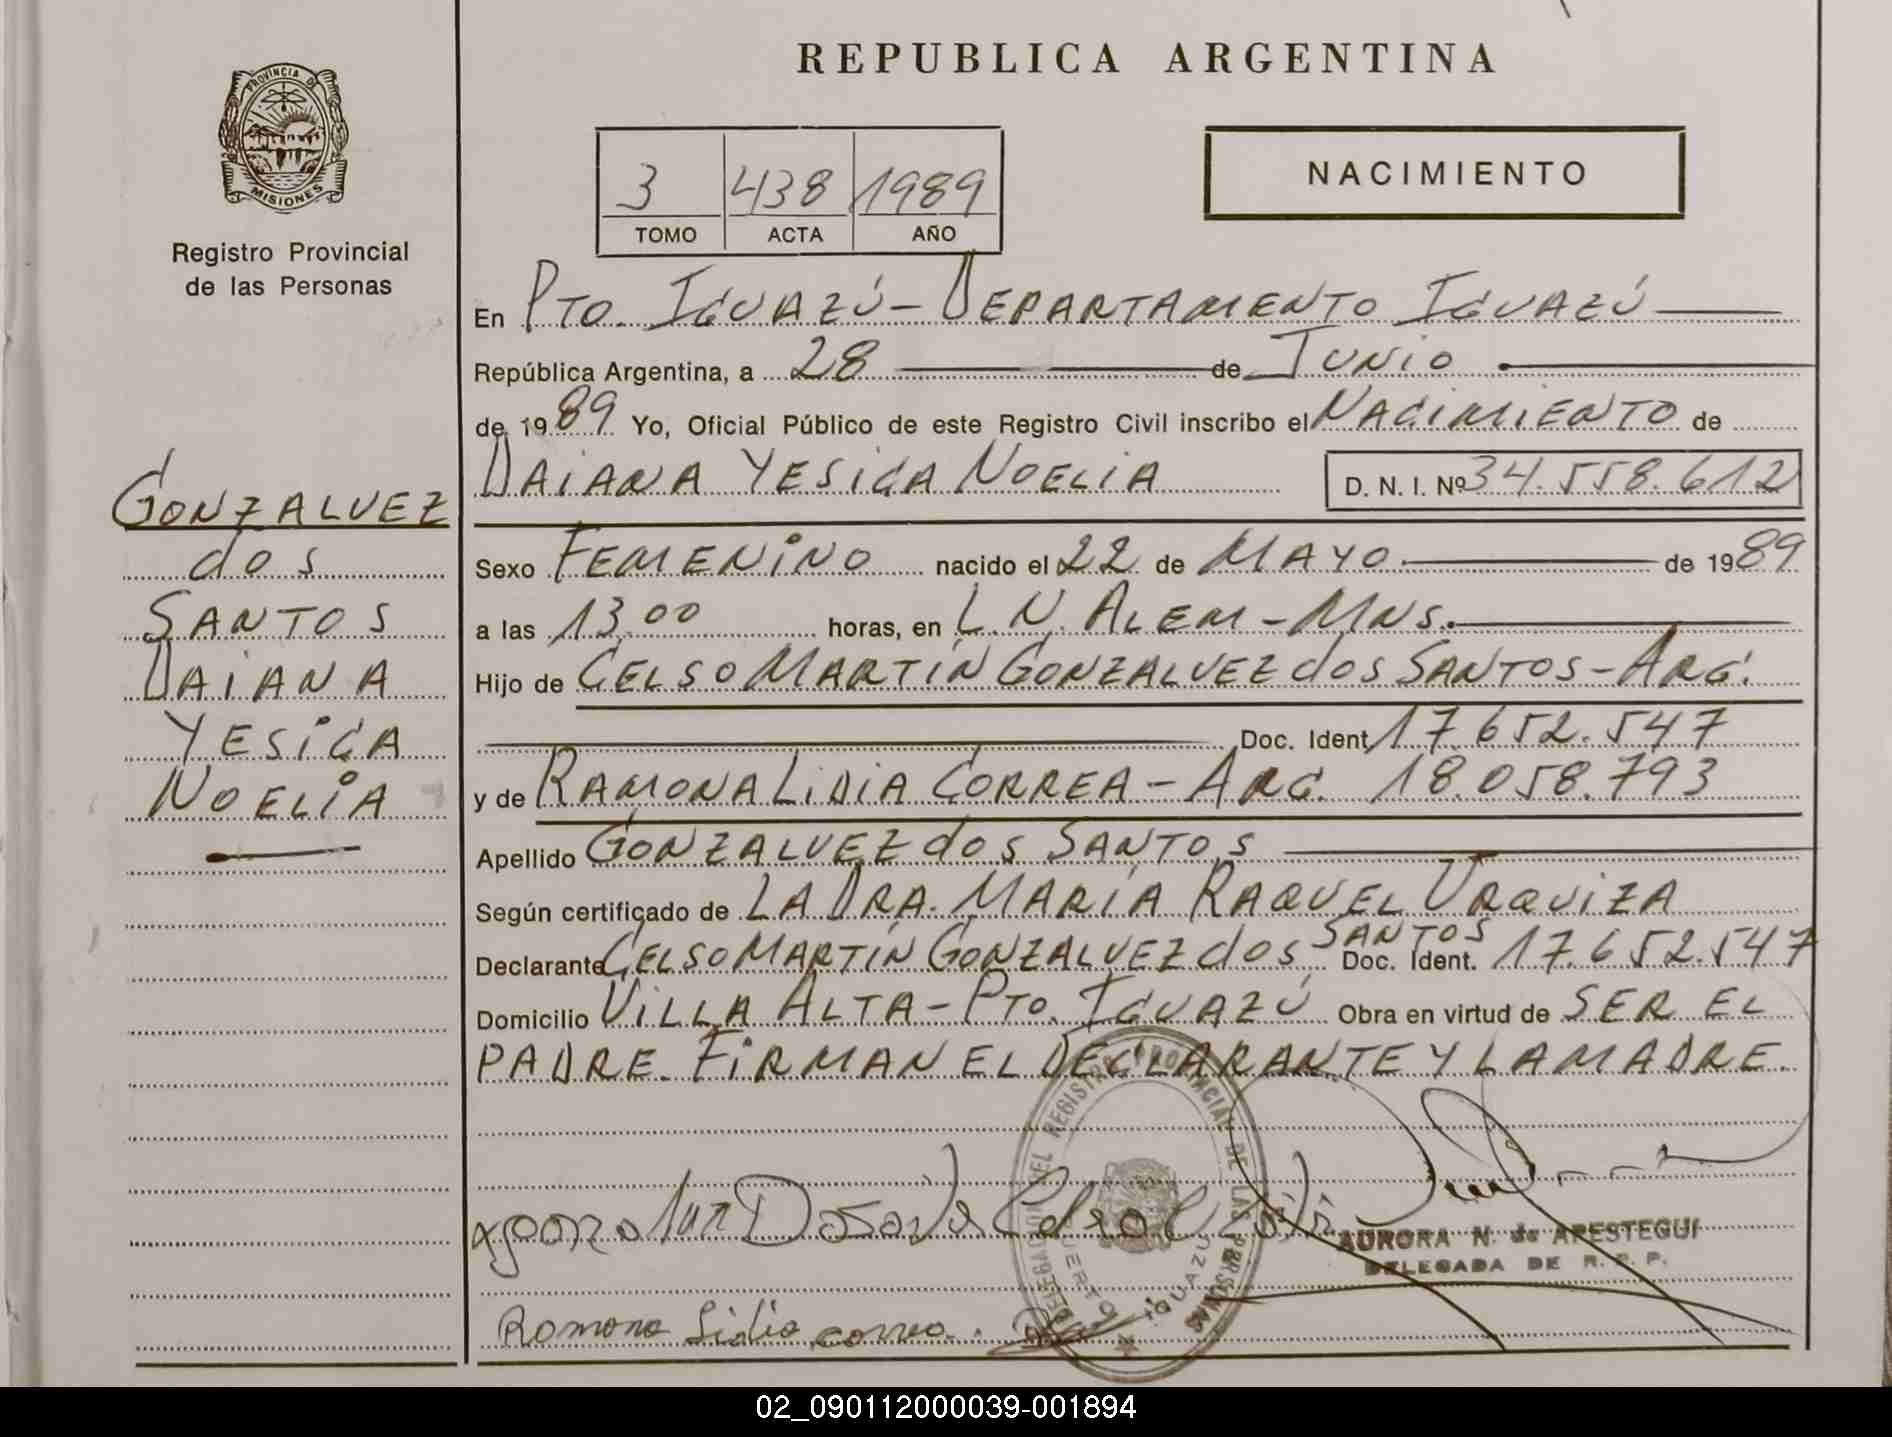 REPUBLICA ARGENTINA
PROVINCIA DE
MISIONES
Registro Provincial
de las Personas
3 438 1989
TOMO ACTA AÑO
NACIMIENTO
En PTO. IGUAZÚ - DEPARTAMENTO IGUAZÚ
República Argentina, a 28 de JUNIO
de 1989 Yo, Oficial Público de este Registro Civil inscribo el NACIMIENTO de
DAIANA YESICA NOELIA D. N. I. Nº 34.558.612
GONZALVEZ
dos
SANTOS
DAIANA
YESICA
NOELIA
Sexo FEMENINO nacido el 22 de MAYO de 1989
a las 13,00 horas, en L.N. ALEM - MNS.
Hijo de CELSO MARTÍN GONZALVEZ dos SANTOS - ARG.
Doc. Ident 17.652.547
y de RAMONA LIDIA CORREA - ARG. 18.058.793
Apellido GONZALVEZ dos SANTOS
Según certificado de LA DRA. MARÍA RAQUEL URQUIZA
Declarante CELSO MARTÍN GONZALVEZ dos SANTOS Doc. Ident. 17.652.547
Domicilio VILLA ALTA - PTO. IGUAZÚ Obra en virtud de SER EL
PADRE. FIRMAN EL DECLARANTE Y LA MADRE.
DELEGACION DEL REGISTRO PROVINCIAL DE LAS PERSONAS
PUERTO IGUAZU
AURORA N. de APESTEGUI
DELEGADA DE R. P. P.
Ramona Lidia correa.
02_090112000039-001894